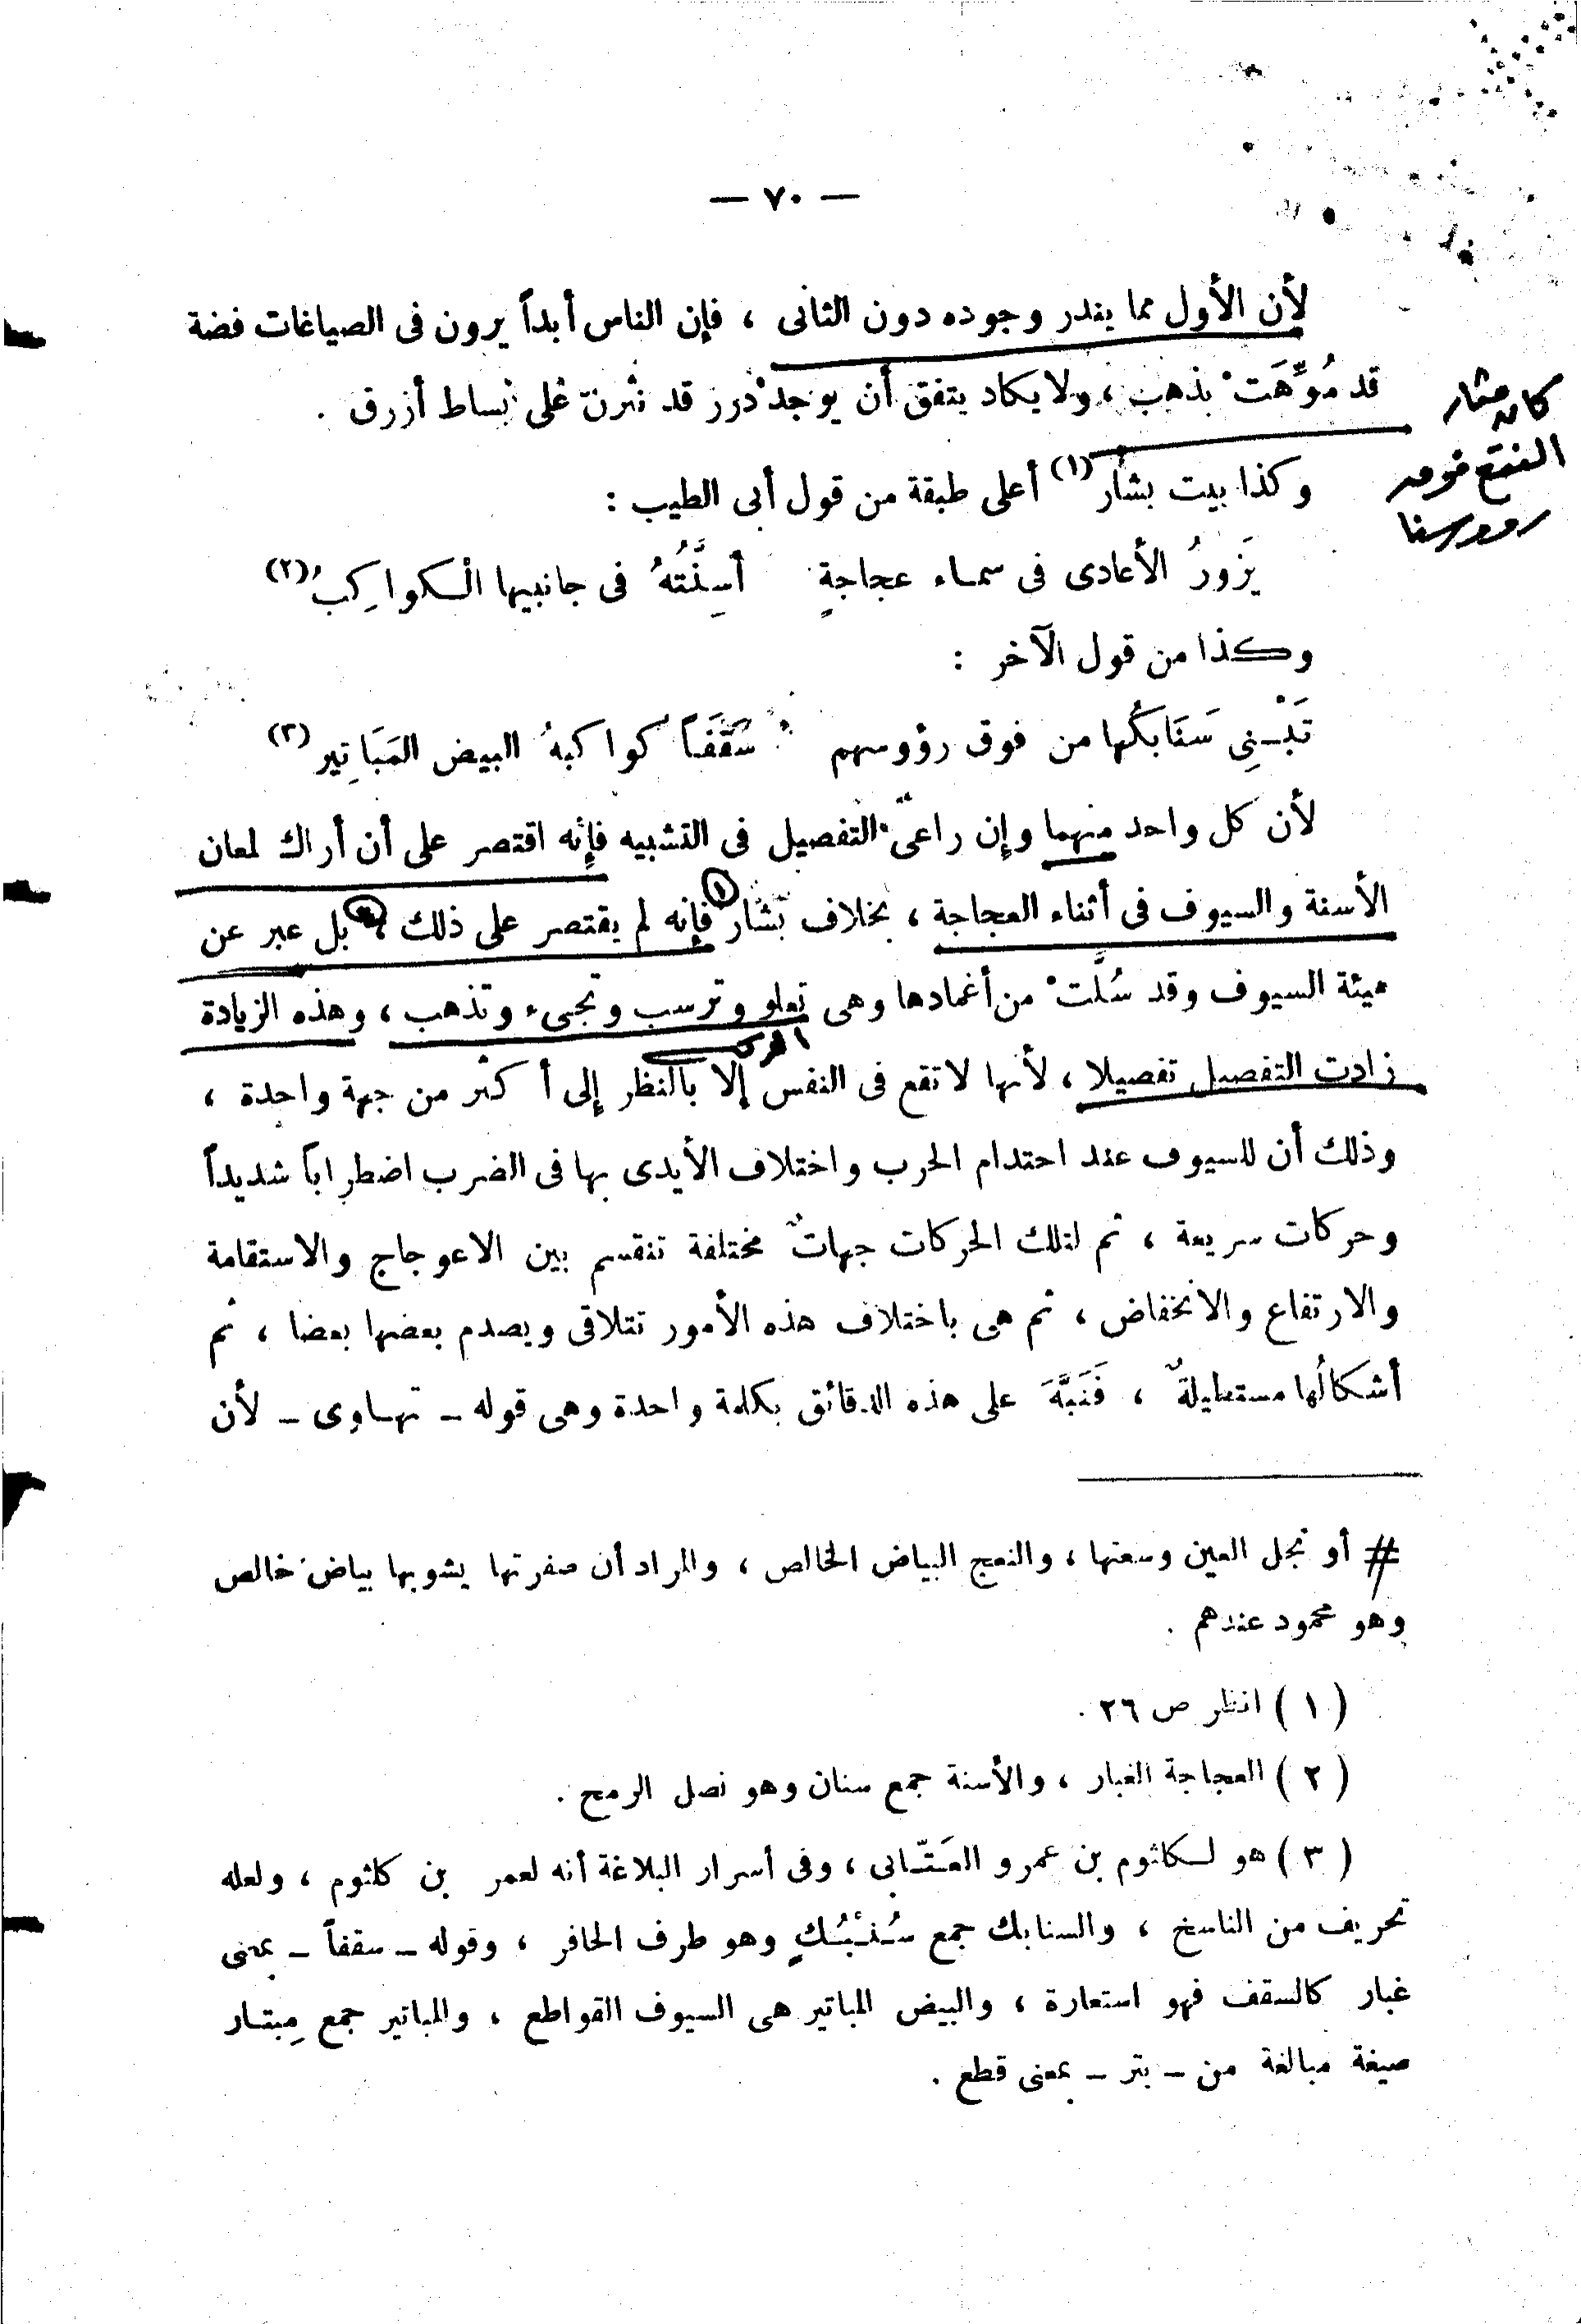 — ٧٠ —
لأن الأول مما يندر وجوده دون الثانى ، فإن الناس أبداً يرون فى الصياغات فضة
قد مُوِّهَتْ بذهب ، ولا يكاد يتفق أن يوجد درر قد نثرن على بساط أزرق .
كان مثار
النقع فوق
رءوسنا
وكذا بيت بشار (١) أعلى طبقة من قول أبى الطيب :
يَزورُ الأعادى فى سماء عجاجةٍ أسِنَّتُهُ فى جانبيها الكواكِبُ (٢)
وكذا من قول الآخر :
تَبْنِى سَنَابكُها من فوق رؤوسهم سَقفَاً كواكبهُ البيض المَبَاتِير (٣)
لأن كل واحد منهما وإن راعى التفصيل فى التشبيه فإنه اقتصر على أن أراك لمعان
الأسنة والسيوف فى أثناء العجاجة ، بخلاف بشار (١) فإنه لم يقتصر على ذلك ، بل عبر عن
هيئة السيوف وقد سُلَّتْ من أغمادها وهى تعلو وترسب وتجىء وتذهب ، وهذه الزيادة
زادت التفصيل تفصيلا ، لأنها لا تقع فى النفس إلا بالنظر إلى أكثر من جهة واحدة ،
وذلك أن للسيوف عند احتدام الحرب واختلاف الأيدى بها فى الضرب اضطراباً شديداً
وحركات سريعة ، ثم لتلك الحركات جهاتٌ مختلفة تنقسم بين الاعوجاج والاستقامة
والارتفاع والانخفاض ، ثم هى باختلاف هذه الأمور تتلاقى ويصدم بعضها بعضا ، ثم
أشكالُها مستطيلةٌ ، فَنَبَّهَ على هذه الدقائق بكلمة واحدة وهى قوله – تهاوى – لأن
# أو نجل العين وسعتها ، والنعج البياض الخالص ، والمراد أن صفرتها يشوبها بياض خالص
وهو محمود عندهم .
( ١ ) انظر ص ٢٦ .
( ٢ ) العجاجة الغبار ، والأسنة جمع سنان وهو نصل الرمح .
( ٣ ) هو لكلثوم بن عمرو العَتَّابى ، وفى أسرار البلاغة أنه لعمر بن كلثوم ، ولعله
تحريف من الناسخ ، والسنابك جمع سُنْبُكٍ وهو طرف الحافر ، وقوله – سقفاً – بمعنى
غبار كالسقف فهو استعارة ، والبيض المباتير هى السيوف القواطع ، والمباتير جمع مِبتار
صيغة مبالغة من – بتر – بمعنى قطع .